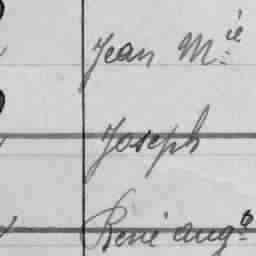 Jean M.ie
Joseph
René aug.e